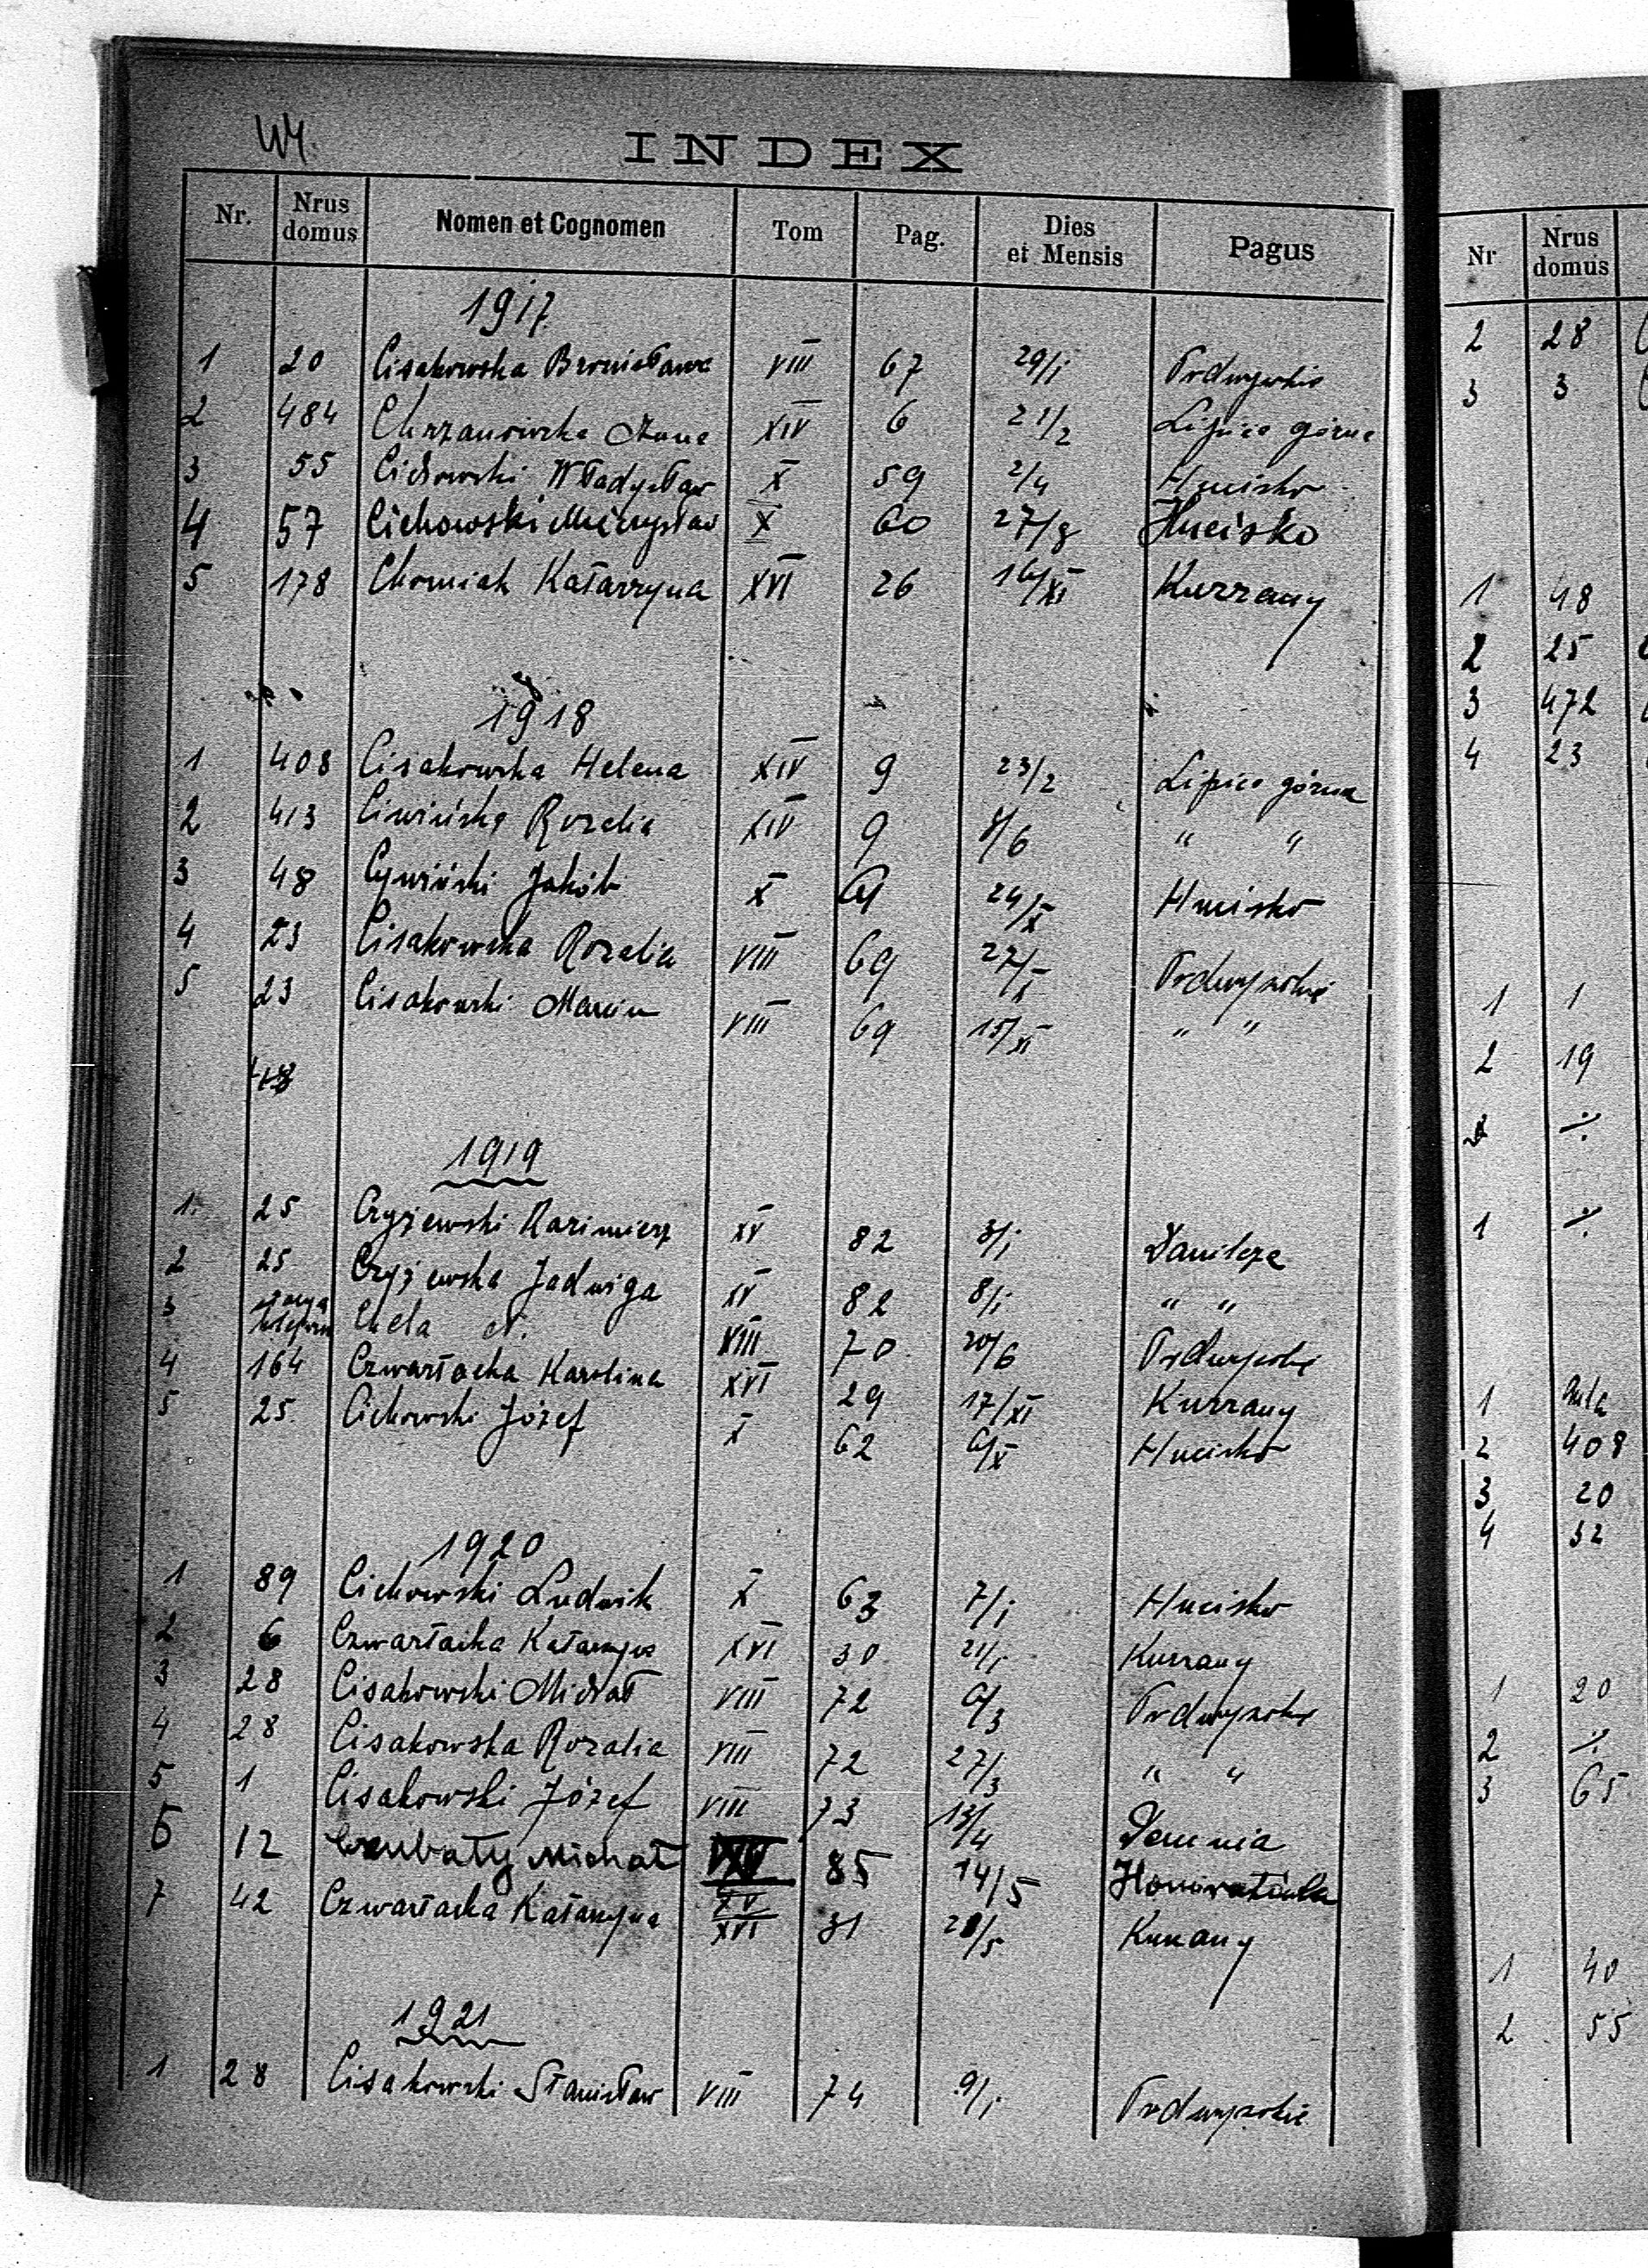 44.
INDEX
Nr. Nrus domus Nomen et Cognomen Tom Pag. Dies et Mensis Pagus
1917
1 20 Cisakowska Bronisława VIII 67 29/I Podwysokie
2 484 Chrzanowska Anna XIV 6 21/2 Lipica górna
3 55 Cichowski Władysław X 59 2/4 Hucisko
4 57 Cichowski Mieczysław X 60 27/8 Hucisko
5 178 Chomiak Katarzyna XVI 26 16/XI Kurzany
1918
1 408 Cisakowska Helena XIV 9 23/2 Lipica górna
2 413 Ciwińska Rozalia XIV 9 8/6 " "
3 48 Cywiński Jakób X 61 24/X Hucisko
4 23 Cisakowska Rozalia VIII 69 27/X Podwysokie
5 23 Cisakowski Marcin VIII 69 15/XI " "
48
1919
1. 25 Czyżewski Kazimierz XV 82 3/I Danilcze
2 25 Czyżewska Jadwiga XV 82 8/I " "
3 Chela N. VIII 70 20/6 Podwysokie
4 164 Czwartacka Karolina XVI 29 17/XI Kurzany
5 25 Cichowski Józef X 62 6/X Hucisko
1920
1 89 Cichowski Ludwik X 63 7/I Hucisko
2 6 Czwartacka Katarzyna XVI 30 21/I Kurzany
3 28 Cisakowski Michał VIII 72 6/3 Podwysokie
4 28 Cisakowska Rozalia VIII 72 27/3 " "
5 1 Cisakowski Józef VIII 73 13/4 Demnia
6 12 Czubaty Michał XV 85 14/5 Honoratówka
7 42 Czwartacka Katarzyna XVI 31 28/5 Kurzany
1921
1 28 Cisakowski Stanisław VIII 74 9/I Podwysokie
Nr Nrus domus
2 28
3 3
1 48
2 25
3 472
4 23
1 1
2 19
3 ·/·
1 ·/·
1
2 408
3 20
4 32
1 20
2 ·/·
3 65
1 40
2 55